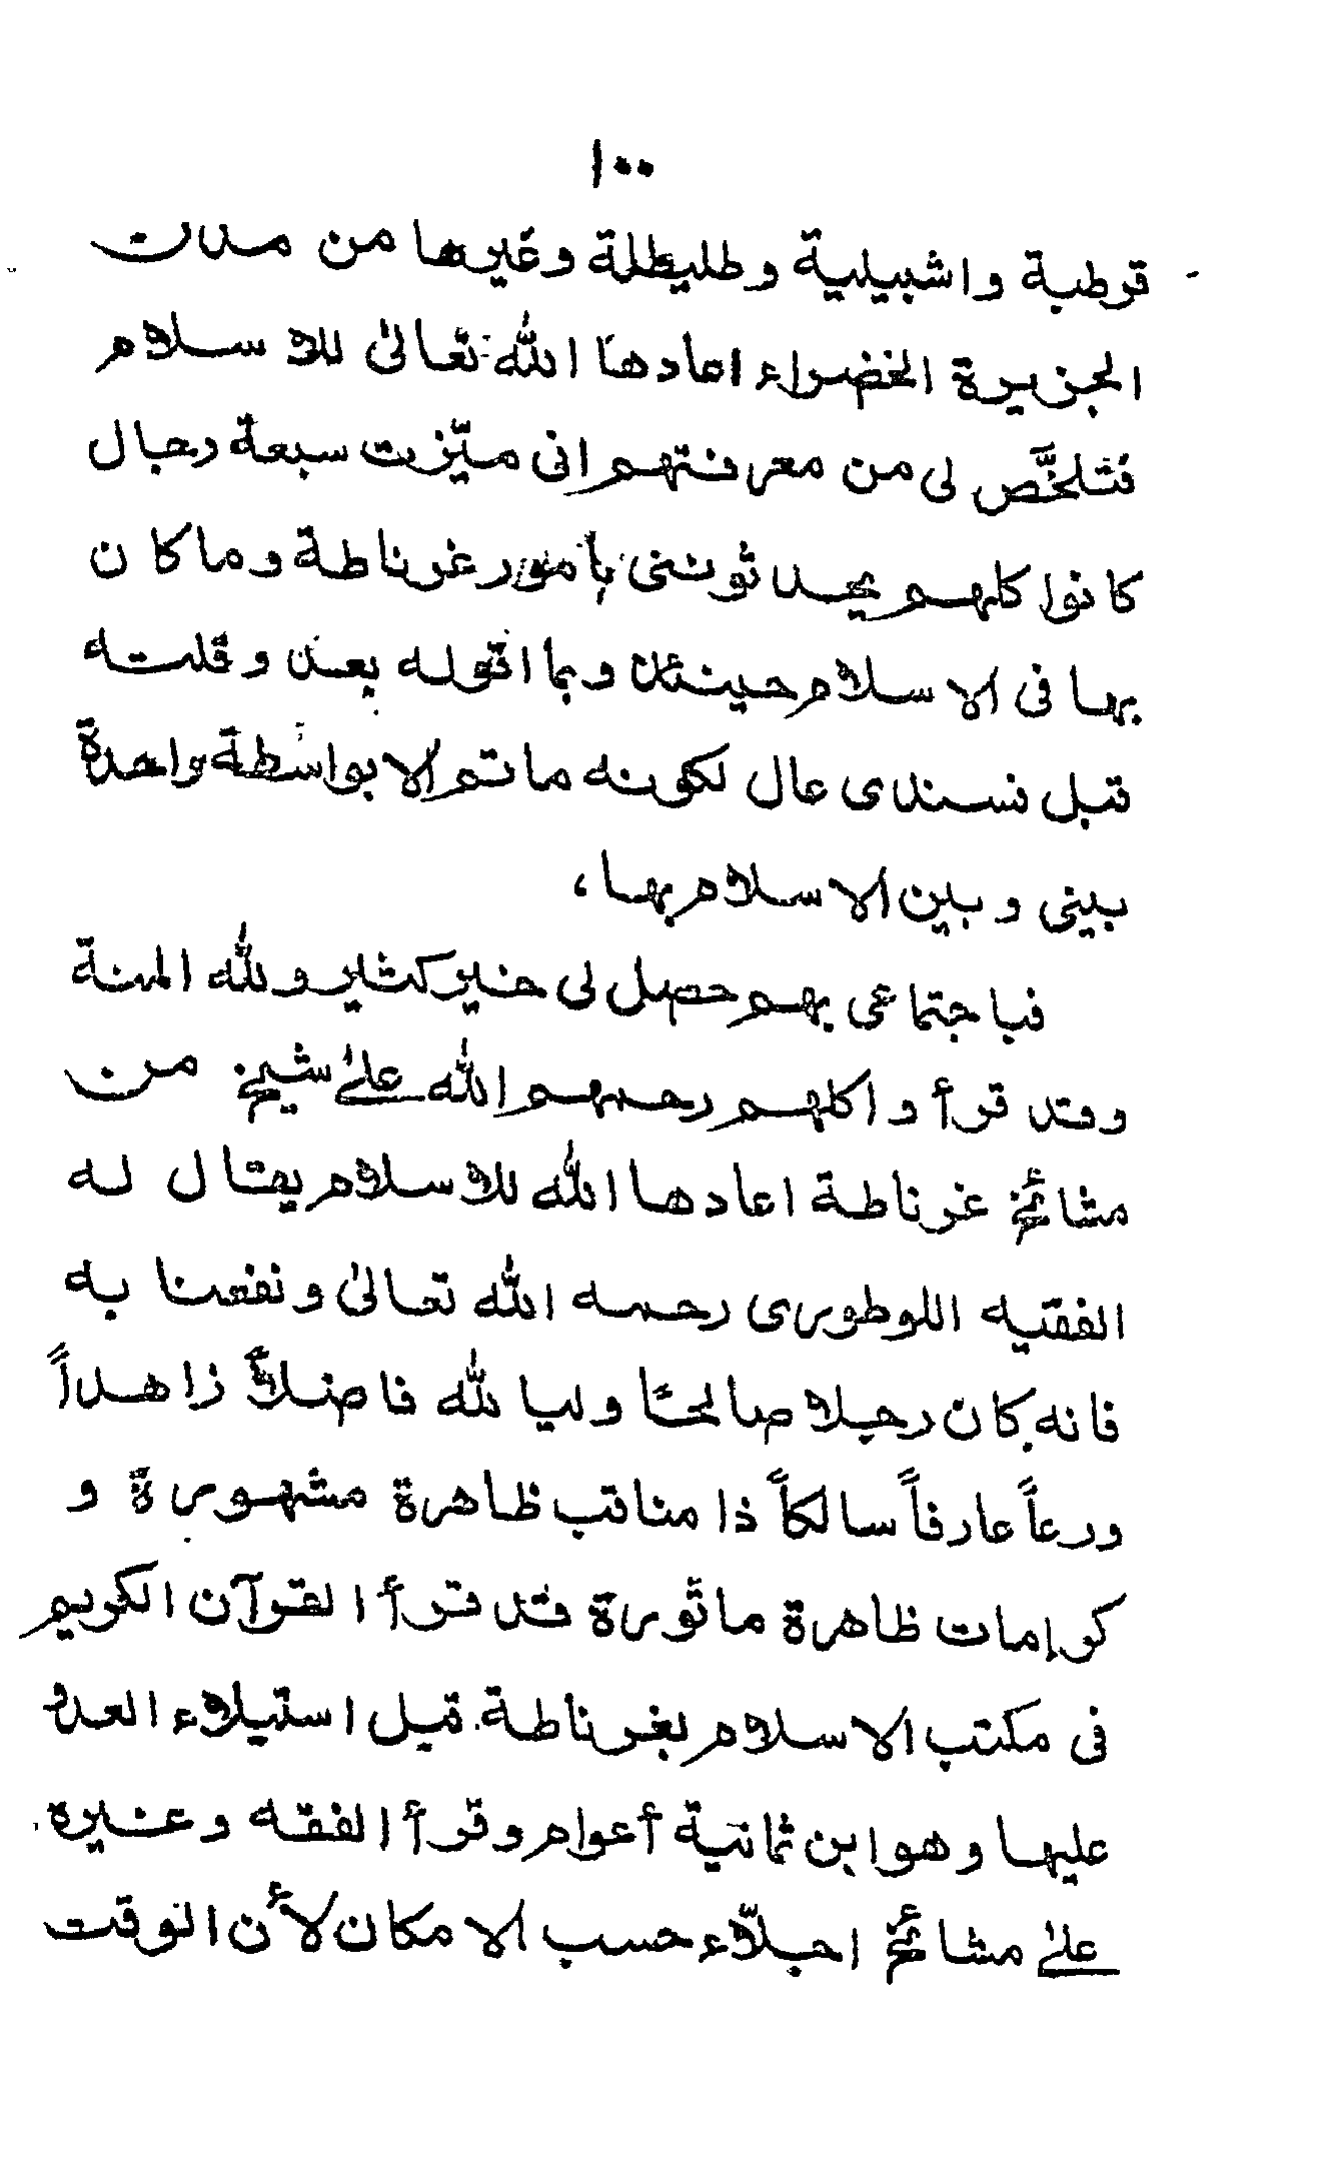 ١٠٠
قرطبة واشبيلية وطليطلة وغيرها من مدن
الجزيرة الخضراء اعادها الله تعالىٰ للاسلام
فتلخَّص لى من معرفتهم انى ميّزت سبعة رجال
كانوا كلهم يحدثوننى بأمور غرناطة وما كان
بها فى الاسلام حينئذ وبما اقوله بعد وقلته
قبل فسندى عال لكونه ما تم الا بواسطة واحدة
بينى وبين الاسلام بها،
فباجتماعى بهم حصل لى خير كثير ولله المنة
وقد قرأوا كلهم رحمهم الله علىٰ شيخ من
مشائخ غرناطة اعادها الله للاسلام يقال له
الفقيه اللوطورى رحمه الله تعالىٰ ونفعنا به
فانه كان رجلا صالحًا وليا لله فاضلاً زاهداً
ورعاً عارفاً سالكاً ذا مناقب ظاهرة مشهورة و
كرامات ظاهرة ماثورة قد قرأ القرآن الكريم
فى مكتب الاسلام بغرناطة قبل استيلاء العدو
عليها وهو ابن ثمانية أعوام وقرأ الفقه وغيره
علىٰ مشائخ اجلّاء حسب الامكان لأن الوقت